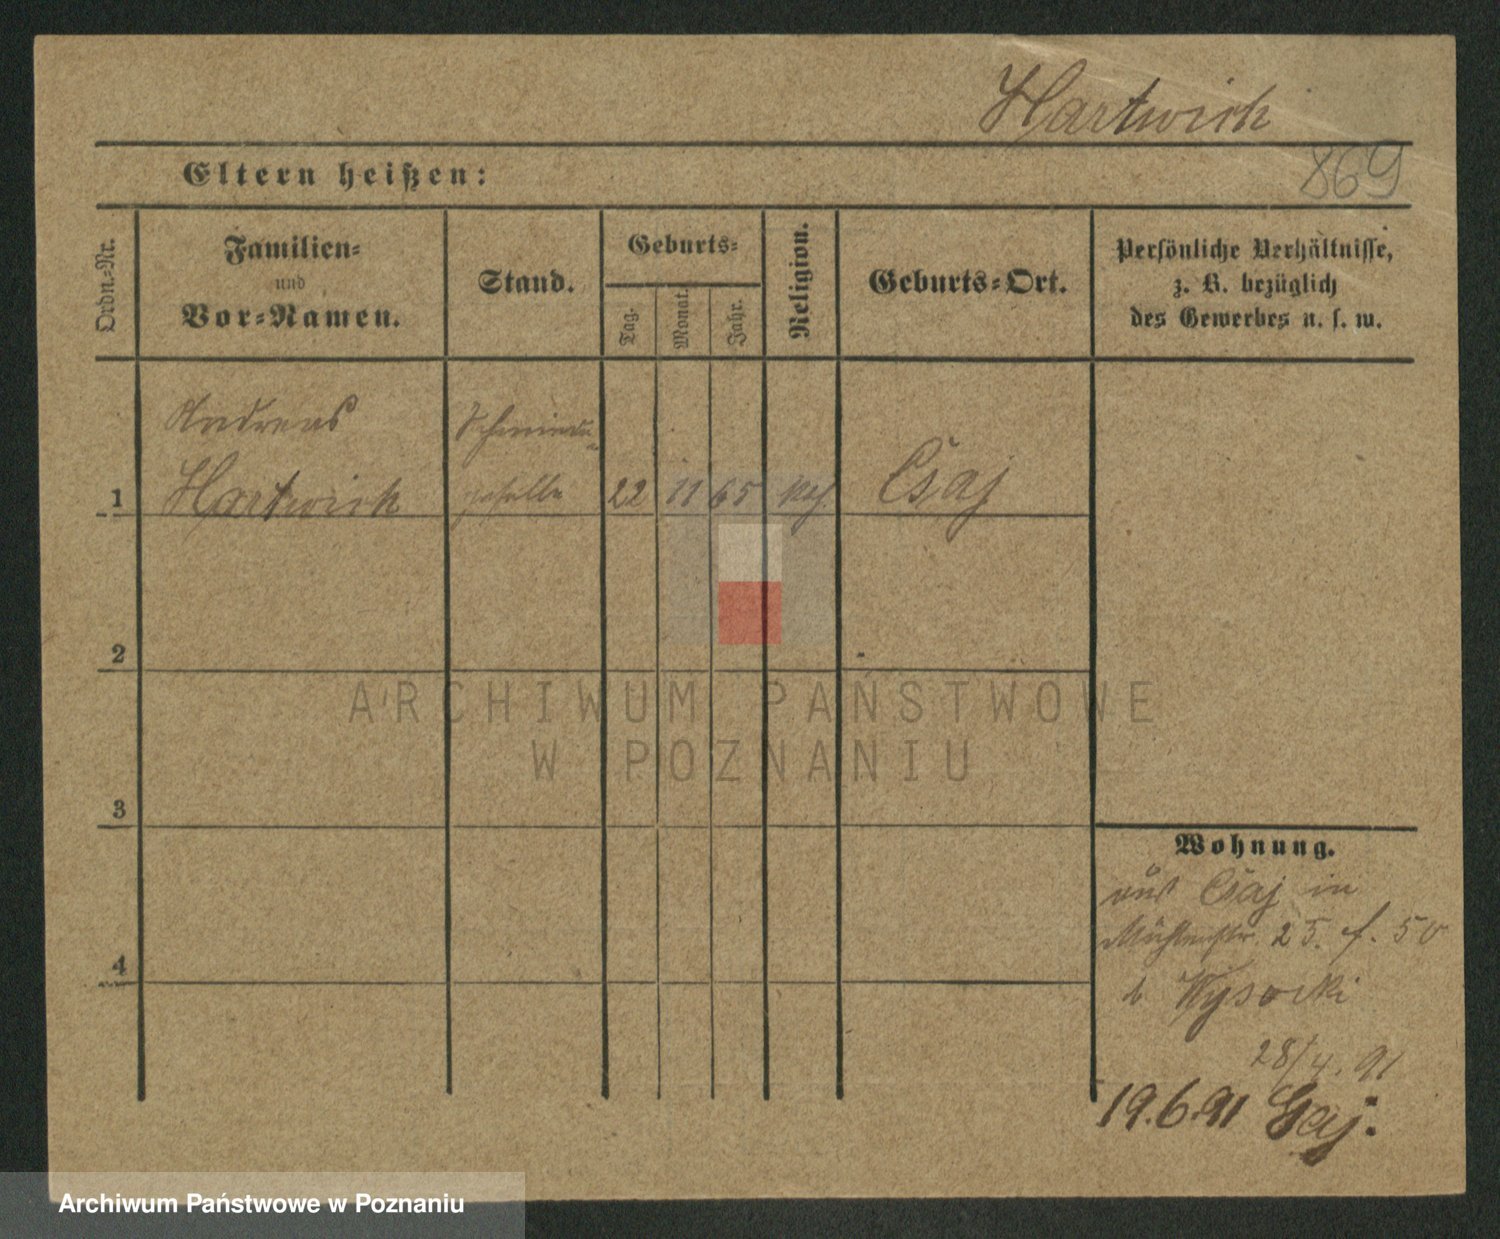 Hartwich
869
Eltern heißen:
Ordn.-Nr.
Familien-
und
Vor-Namen.
Stand.
Geburts-
Tag.
Monat.
Jahr.
Religion.
Geburts-Ort.
Persönliche Verhältnisse,
z. B. bezüglich
des Gewerbes u. s. w.
Andreas
Hartwich
Schmiede-
geselle
1
22 11 65
Csaj
2
3
4
Wohnung.
aus Csaj in
25. f. 50
b Wysocki
28/4. 91
19.6.91 Gaj.
ARCHIWUM PAŃSTWOWE
W POZNANIU
Archiwum Państwowe w Poznaniu